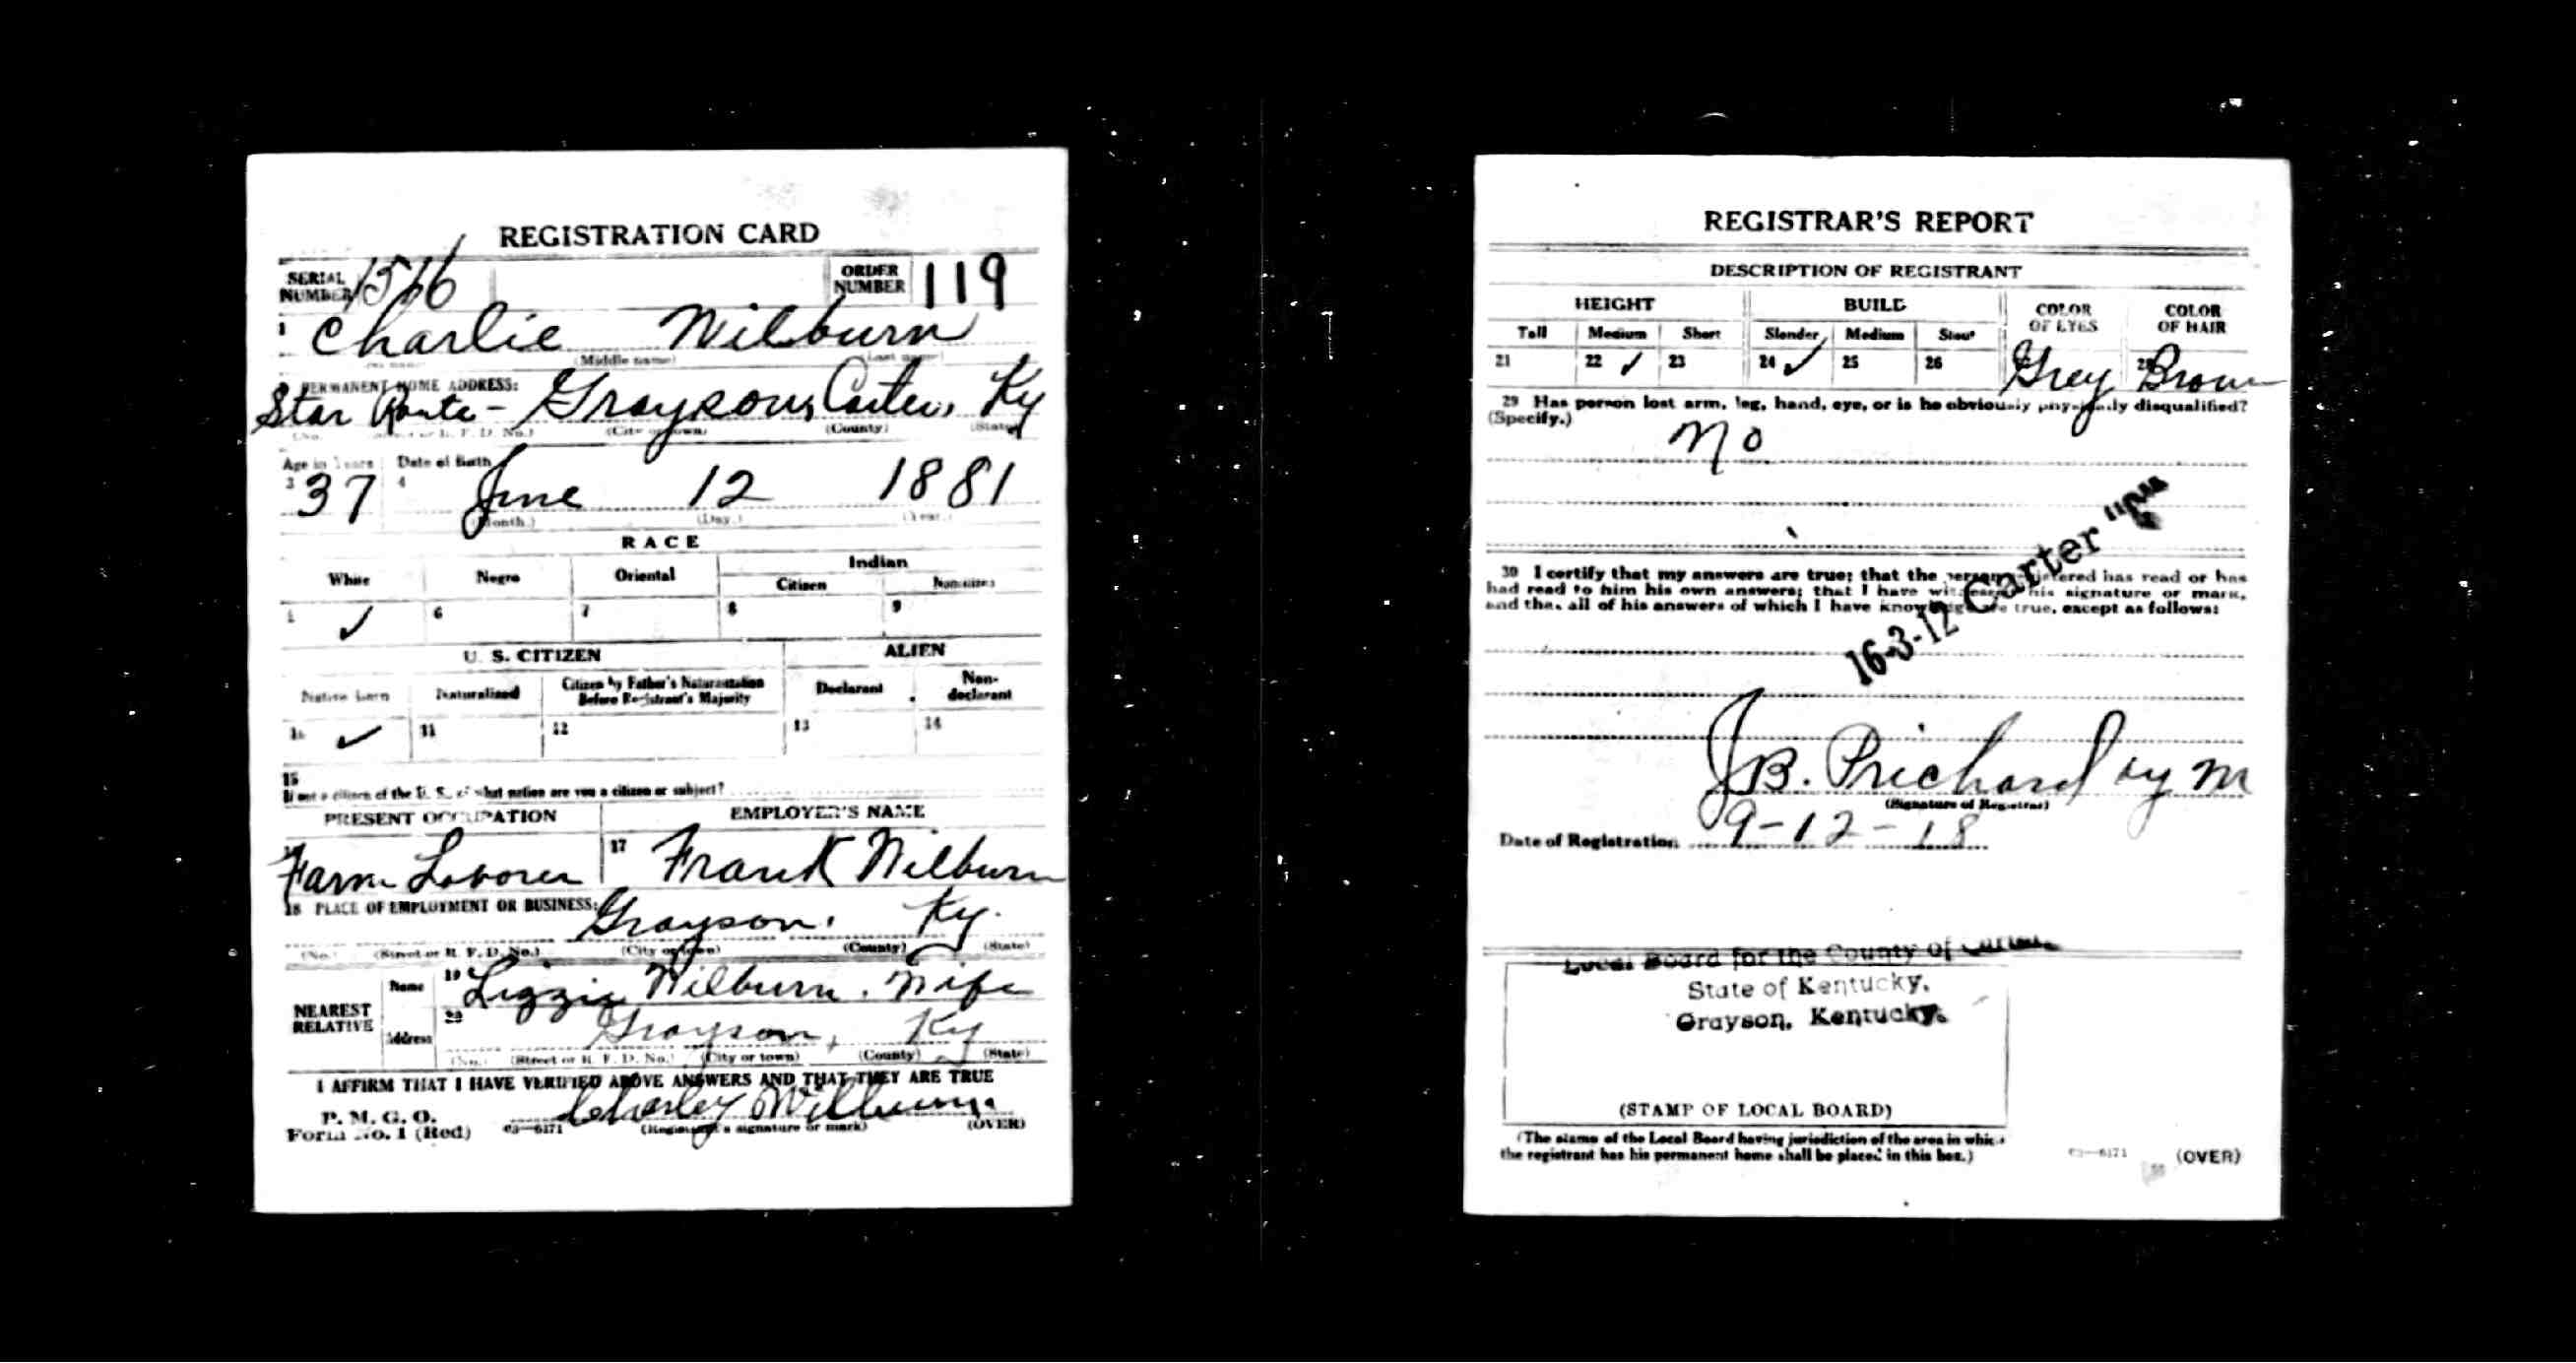 REGISTRATION CARD
SERIAL NUMBER 1516 ORDER NUMBER 119
1 Charlie Wilburn
(Middle name) (Last name)
PERMANENT HOME ADDRESS:
Star Route - Grayson, Carter, Ky
(No.) (Street or R. F. D. No.) (City or town) (County) (State)
Age in Years Date of Birth
3 37 4 June 12 1881
(Month.) (Day.) (Year.)
RACE
White Negro Oriental Indian
Citizen Noncitizen
5 ✓ 6 7 8 9
U. S. CITIZEN ALIEN
Native Born Naturalized Citizen by Father's Naturalization Before Registrant's Majority Declarant Non-declarant
10 ✓ 11 12 13 14
15
If not a citizen of the U. S., of what nation are you a citizen or subject?
PRESENT OCCUPATION EMPLOYER'S NAME
Farm Laborer 17 Frank Wilburn
18 PLACE OF EMPLOYMENT OR BUSINESS:
Grayson, Ky.
(No.) (Street or R. F. D. No.) (City or town) (County) (State)
NEAREST RELATIVE
Name 19 Lizzie Wilburn. Wife
Address 20 Grayson, Ky
(No.) (Street or R. F. D. No.) (City or town) (County) (State)
I AFFIRM THAT I HAVE VERIFIED ABOVE ANSWERS AND THAT THEY ARE TRUE
P. M. G. O.
Form No. 1 (Red) 03—6171 Charley Wilburn
(Registrant's signature or mark) (OVER)
REGISTRAR'S REPORT
DESCRIPTION OF REGISTRANT
HEIGHT BUILD COLOR OF EYES COLOR OF HAIR
Tall Medium Short Slender Medium Stout
21 22 ✓ 23 24 ✓ 25 26 Grey 28 Brown
29 Has person lost arm, leg, hand, eye, or is he obviously physically disqualified?
(Specify.)
No
30 I certify that my answers are true; that the person registered has read or has
had read to him his own answers; that I have witnessed his signature or mark,
and that all of his answers of which I have knowledge are true, except as follows:
16-3-12 Carter
J B. Prichard by M
(Signature of Registrar)
Date of Registration 9-12-18
Local Board for the County of Carter
State of Kentucky,
Grayson, Kentucky.
(STAMP OF LOCAL BOARD)
(The stamp of the Local Board having jurisdiction of the area in which
the registrant has his permanent home shall be placed in this box.)
03—6171 (OVER)